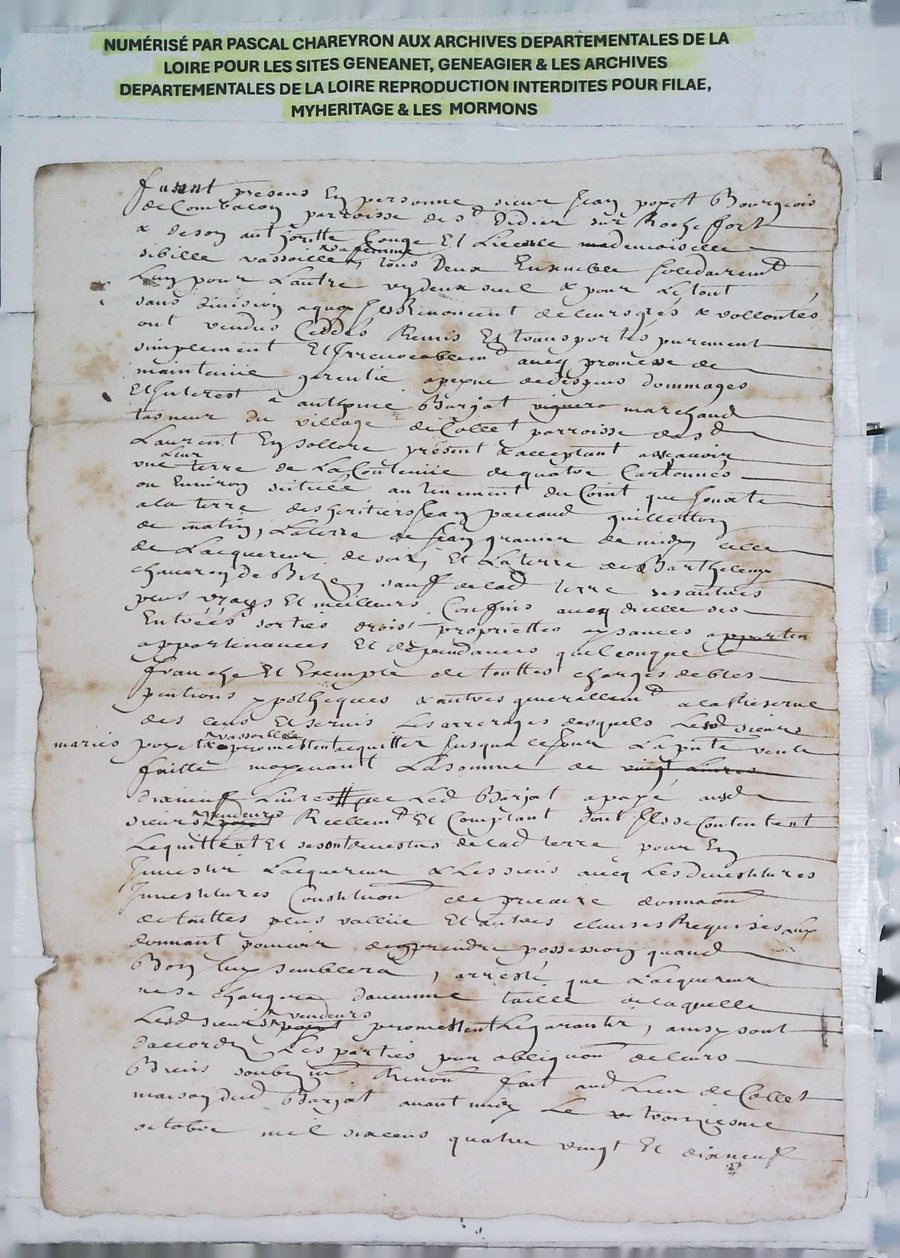 NUMÉRISÉ PAR PASCAL CHAREYRON AUX ARCHIVES DEPARTEMENTALES DE LA
LOIRE POUR LES SITES GENEANET, GENEAGIER & LES ARCHIVES
DEPARTEMENTALES DE LA LOIRE REPRODUCTION INTERDITES POUR FILAE,
MYHERITAGE & LES MORMONS
furent presens En personne sieur Jean poyet Bourgeois
de Combacon parroisse de st Didier sur Rochefort
& de son authoritte Conge Et Licence mademoiselle
sa femme
sibille vassoille tous Deux Ensemble solidairemt
Lun pour Lautre un deux seul & pour Le tout
sans division a quoy Ils Renoncent de leurs gres & vollontés
ont vendus Ceddés Remis Et transportés purement
simplement Et Irrevocablemt aveq promesse de
maintenir garentir a peyne de despans dommages
Et Interest a anthoine Barjat marchand
tasneur du village de Collet parroisse de st
Laurent En sollore présent & acceptant assavoir
Leur
une terre de La Contenue de quatre Cartonnés
ou Environ scituée au tenement du Coint que Jouxte
a la terre des heritiers Jean paccaud guilletton
de matin, La terre de Jean granier de midy celle
de Lacquereur de soir, Et La terre de Barthelemy
chauron de Bize sauf de lad terre ses autres
plus vrays Et meilleurs Confins aveq dicelle ses
Entrées sorties droist proprietes aysances apparten
appartenances Et dependances quelconques
franche Et Exempte de touttes charges debtes
pentions ypothèques & autres generallemt a la Reserve
des cens Et servis Les arrerages desquels Lesd sieurs
mariés poyet & vassoille promettent acquitter Jusqua ce Jour La pnte vente
faitte moyenant La somme de vingt Livres
dixneuf Livres que Led Barjat a payé ausd
sieurs vendeurs Reellemt Et Comptant dont Ils se Contentent
Le quittent Et se sont demestus de lad terre pour En
Investir Lacquereur & Les siens aveq Les demestitures
Investitures Constitution de precaire donnaon
de touttes plus vallüe Et autres clauses Requises Luy
donnant pouvoir den prendre possession quand
Bon luy semblera, arresté que Lacquereur
ne se chargera dauCune taille de laquelle
Lesd sieurs vendeurs promettent Le garantir, ainsy sont
daccord Les parties par obligaon de leurs
Biens soubzmis Renon fait aud Lieu de Collet
maison dud Barjat avant midy Le
octobre mil sixcens quatre vingt Et dixneuf